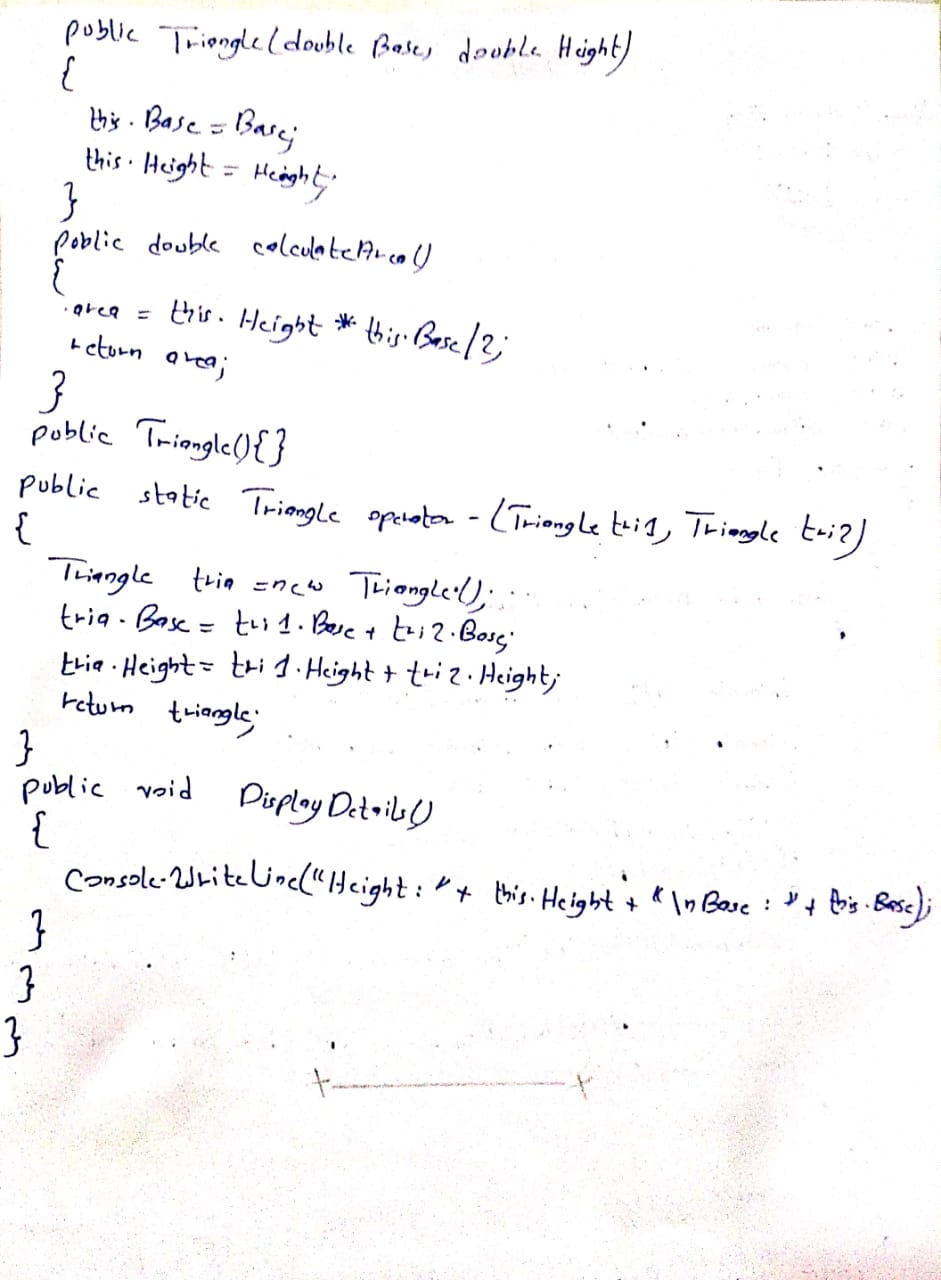 public Triangle(double Base, double Height)
{
this.Base = Base;
this.Height = Height;
}
public double calculateArea()
{
area = this.Height * this.Base/2;
return area;
}
public Triangle(){}
public static Triangle operator - (Triangle tri1, Triangle tri2)
{
Triangle tria = new Triangle();
tria.Base = tri1.Base + tri2.Base;
tria.Height = tri1.Height + tri2.Height;
return triangle;
}
public void DisplayDetails()
{
Console.WriteLine("Height: " + this.Height + "\nBase : " + this.Base);
}
}
}